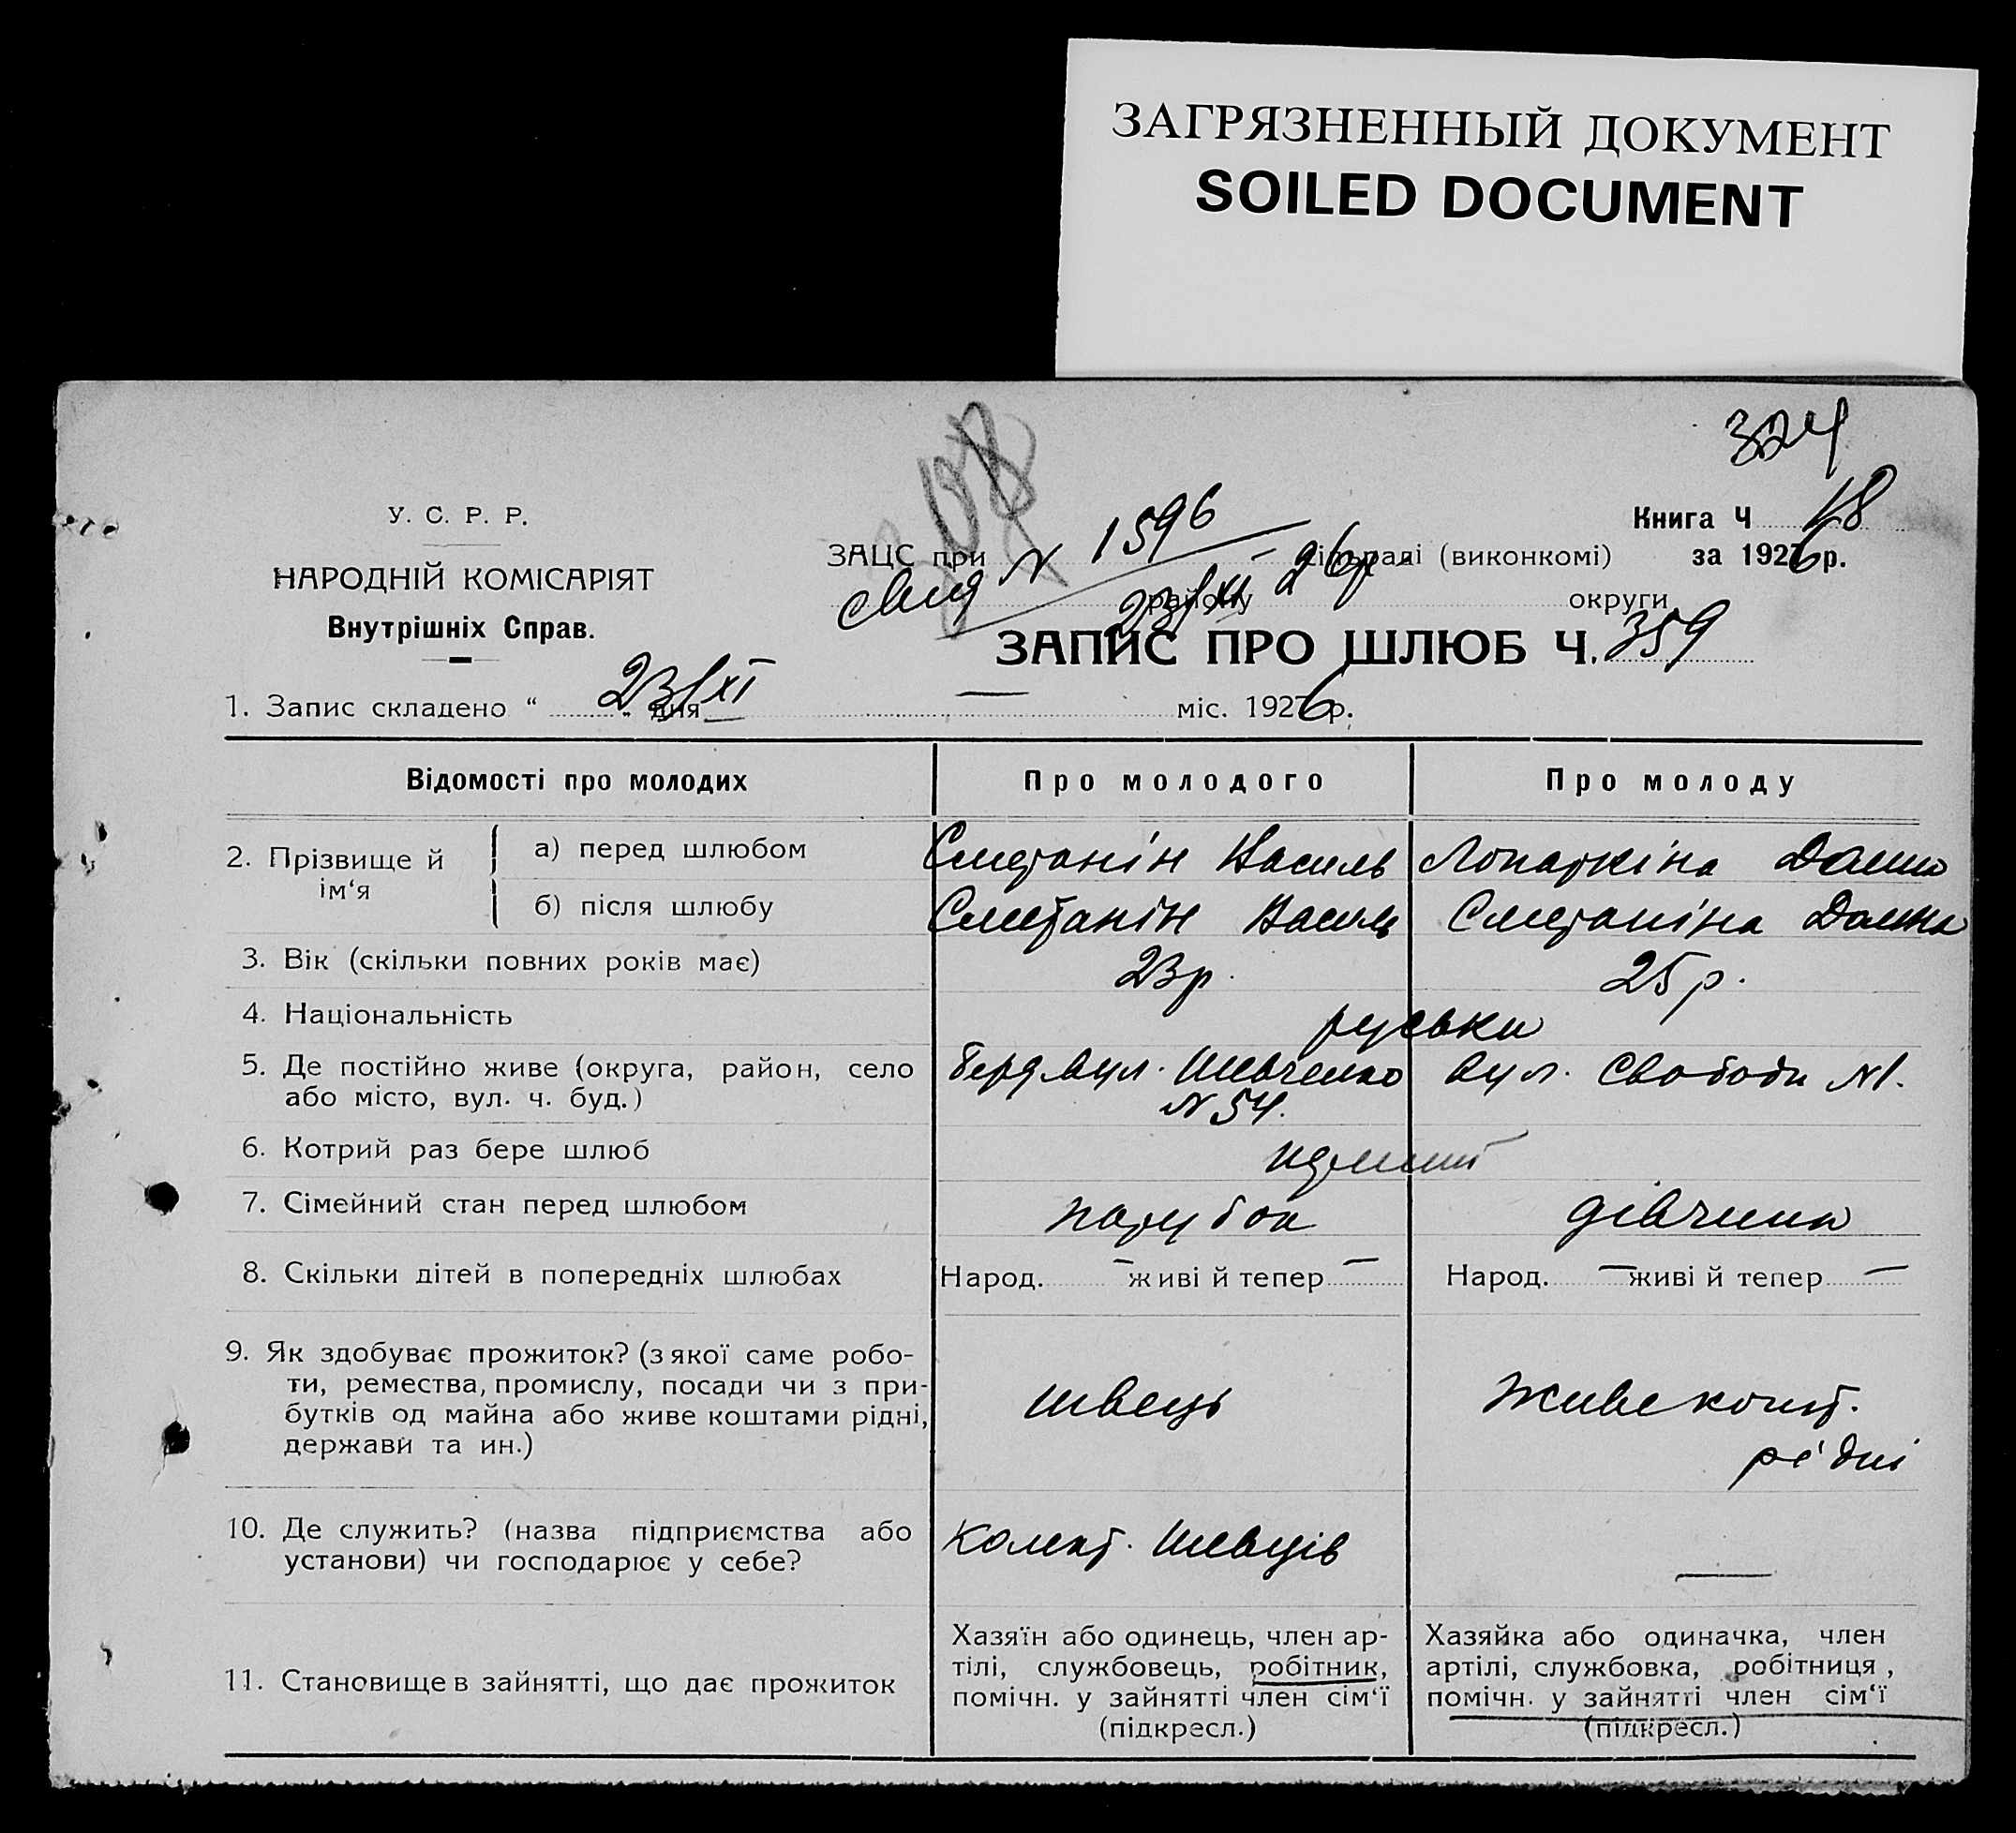 ЗАГРЯЗНЕННЫЙ ДОКУМЕНТ
SOILED DOCUMENT
324
У. С. Р. Р.
НАРОДНІЙ КОМІСАРІЯТ
Внутрішніх Справ.
Книга Ч 18
ЗАЦС при N 1596 (виконкомі) за 1926 р.
району 23/XI - 26р округи
ЗАПИС ПРО ШЛЮБ Ч. 359
1. Запис складено “ 23/XI дня міс. 1926 р.
Відомості про молодих Про молодого Про молоду
2. Прізвище й ім‘я
а) перед шлюбом Сметанін Василь Лопаткіна Домна
б) після шлюбу Сметанін Василь Сметаніна Домна
3. Вік (скільки повних років має) 23р. 25р.
4. Національність руськи
5. Де постійно живе (округа, район, село Берд. вул. Шевченко вул. Свободи N1.
або місто, вул. ч. буд.) N 54.
6. Котрий раз бере шлюб
7. Сімейний стан перед шлюбом парубок дівчина
8. Скільки дітей в попередніх шлюбах Народ. — живі й тепер — Народ. — живі й тепер —
9. Як здобуває прожиток? (з якої саме робо-
ти, ремества, промислу, посади чи з при-
бутків од майна або живе коштами рідні, швець Живе кошт.
держави та ин.) рідні
10. Де служить? (назва підприємства або Колект. Шевців
установи) чи господарює у себе? —
11. Становище в зайнятті, що дає прожиток
Хазяїн або одинець, член ар-
тілі, службовець, робітник,
помічн. у зайнятті член сім‘ї
(підкресл.)
Хазяйка або одиначка, член
артілі, службовка, робітниця,
помічн. у зайнятті член сім‘ї
(підкресл.)